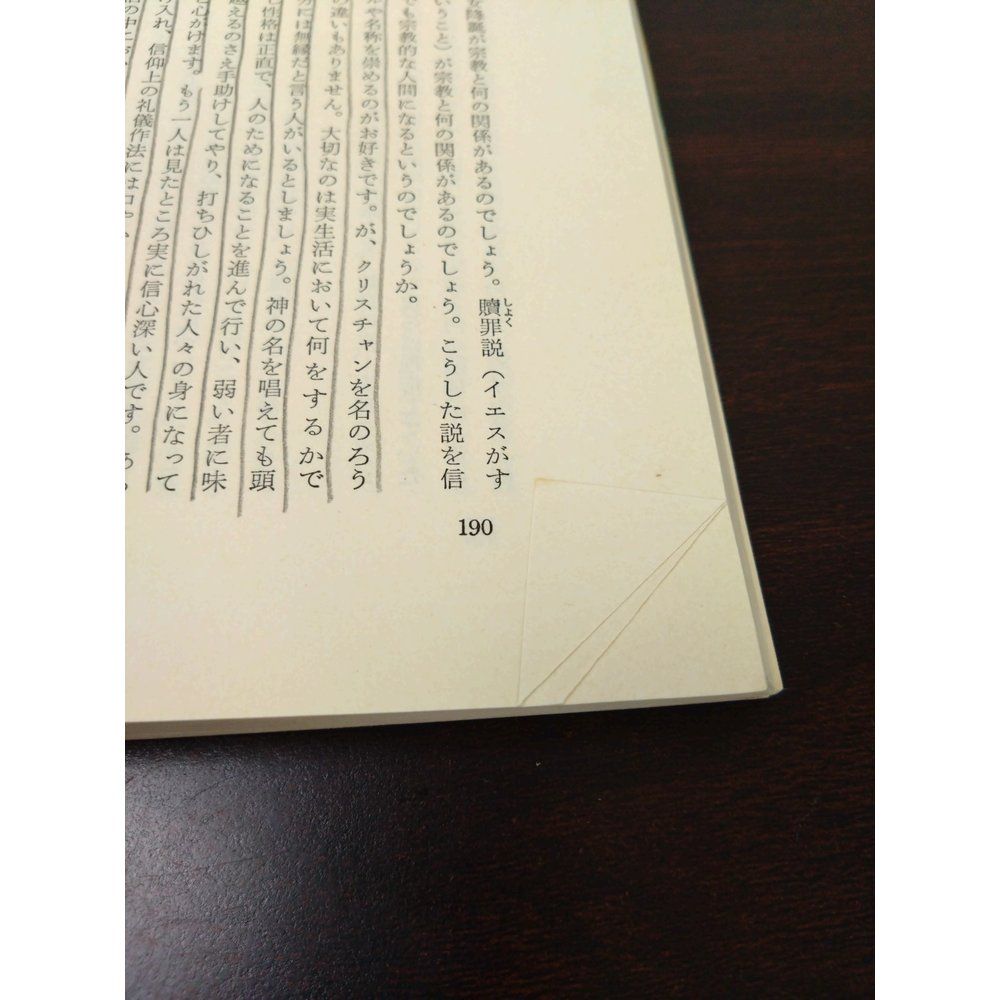 が宗教と何の関係があるのでしょう。贖罪説（イエスがす
しょく
いうこと）が宗教と何の関係があるのでしょう。こうした説を信
でも宗教的な人間になるというのでしょうか。
や名称を崇めるのがお好きです。が、クリスチャンを名のろう
の違いもありません。大切なのは実生活において何をするかで
には無縁だと言う人がいるとしましょう。神の名を唱えても頭
性格は正直で、人のためになることを進んで行い、弱い者に味
越えるのさえ手助けしてやり、打ちひしがれた人々の身になって
心がけます。もう一人は見たところ実に信心深い人です。
入れ、信仰上の礼儀作法には
190